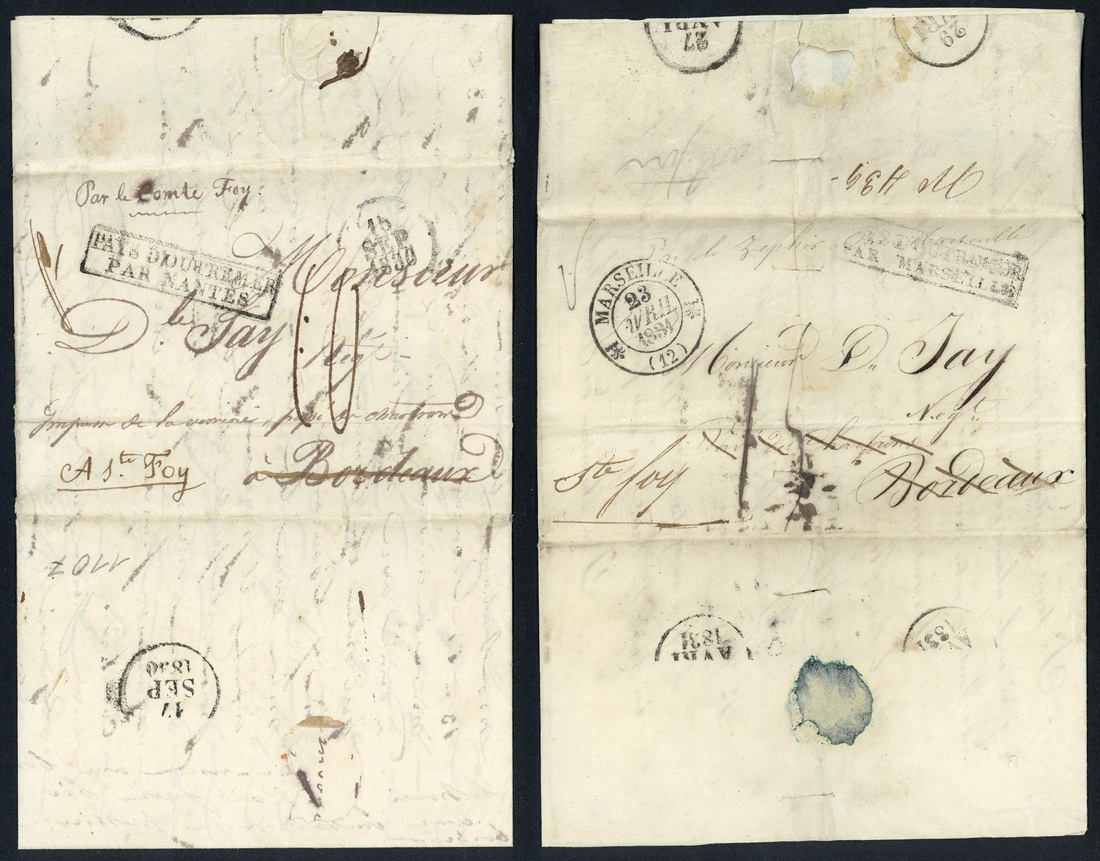 Par le Comte Foy.
PAYS D'OUTREMER
PAR NANTES
15
SEP
1830
Monsieur
D. le Jay
Négt
10
Impasse de la
A Ste Foy
à Bordeaux
1107
17
SEP
1830
27
AVRI
29
AVRI
No 436
Par le Zephir
Marseille
PAYS D'OUTREMER
PAR MARSEILLE
MARSEILLE
23
AVRIL
1831
(12)
Monsieur D. Jay
Negt.
Ste foy
Bordeaux
AVRI
1831
1831